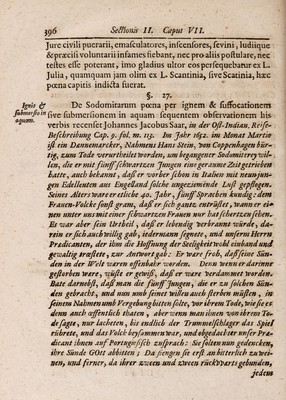 396 Sectionis II. Caput VII.
Jure civili puerarii, emasculatores, inscensores, sevini, ludiique
& præcisi voluntarii infames fiebant, nec pro aliis postulare, nec
testes esse poterant, imo gladius ultor eos persequebatur ex L.
Julia, quamquam jam olim ex L. Scantinia, sive Scatinia, hæc
pœna capitis indicta fuerat.
§. 27.
Ignis &
submersio in
aquam.
De Sodomitarum pœna per ignem & suffocationem
sive submersionem in aquam sequentem observationem his
verbis recenset Johannes Jacobus Saar, in der Ost-Indian. Reise-
Beschreibung Cap. 9. fol. m. 115. Im Jahr 1652. im Monat Martio
ist ein Dannemarcker, Nahmens Hans Stein, von Coppenhagen bür-
tig, zum Tode verurtheilet worden, um begangener Sodomiterey wil-
len, die er mit fünff schwartzen Jungen eine geraume Zeit getrieben
hatte, auch bekannt, daß er vorher schon in Italien mit neun jun-
gen Edelleuten aus Engelland solche ungeziemende Lust gepflogen.
Seines Alters ware er etliche 40. Jahr, fünff Sprachen kundig: dem
Frauen-Volcke sonst gram, daß er sich gantz entrüstet, wann er ei-
nen unter uns mit einer schwartzen Frauen nur hat schertzen sehen.
Es war aber sein Urtheil, daß er lebendig verbrannt würde, da-
rein er sich auch willig gab, iedermann segnete, und unsers Herrn
Predicanten, der ihm die Hoffnung der Seeligkeit wohl einband und
gewaltig tröstete, zur Antwort gab: Er ware froh, daß seine Sün-
den in der Welt waren offenbahr worden. Denn wenn er darinne
gestorben ware, wüste er gewiß, daß er ware verdammet worden.
Bate darnebst, daß man die fünff Jungen, die er zu solchen Sün-
den gebracht, und nun umb seinet willen auch sterben müsten, in
seinem Nahmen umb Vergebung bitten solte, vor ihrem Tode, wie sie es
denn auch offentlich thaten, aber wenn man ihnen von ihrem To-
de sagte, nur lacheten, bis endlich der Trummelschlager das Spiel
rührete, und das Volck beysammen war, und obgedachter unser Præ-
dicant ihnen auf Portugisisch zusprach: Sie solten nun gedencken,
ihre Sünde GOtt abbitten; Da fiengen sie erst an bitterlich zu wei-
nen, und ferner, da ihrer zween und zween rückwarts gebunden,
jedem